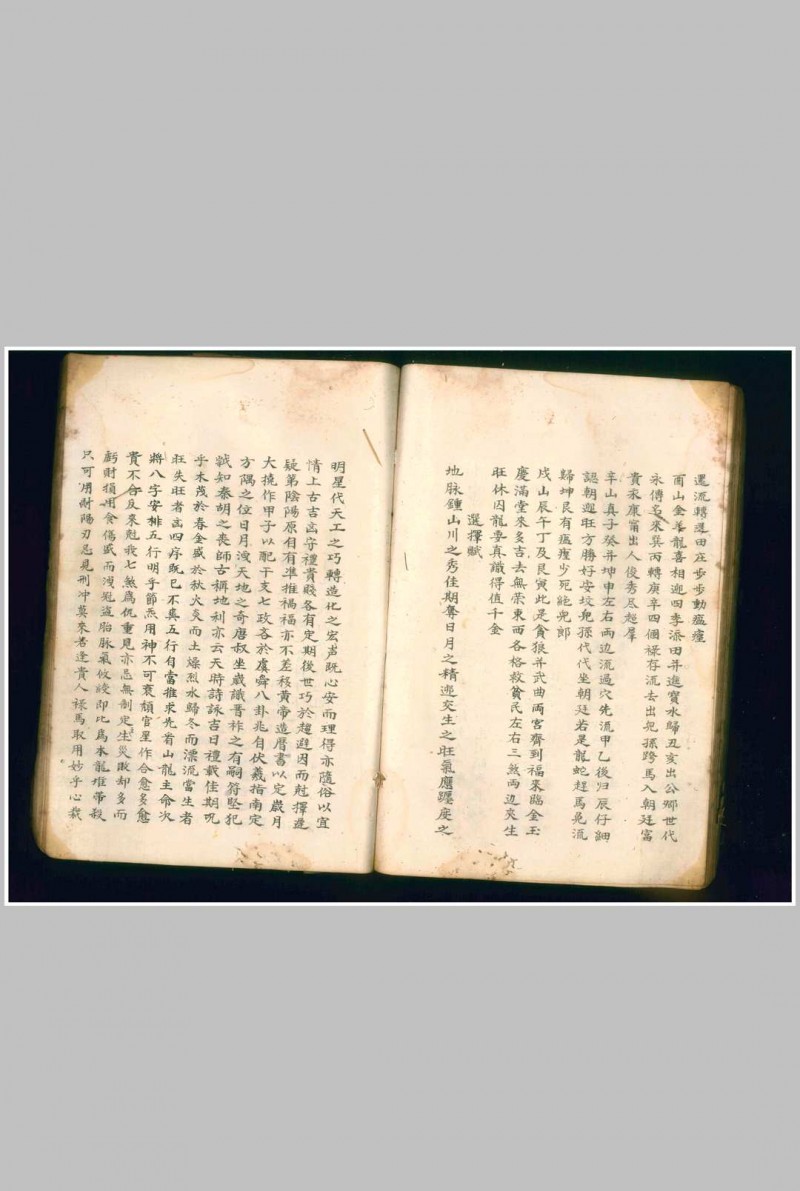 還流轉進田庄步步動瘟𤺺
酉山金羊龍喜相迎四季添田并進寶水歸丑亥出公卿世代
永傳名來巽丙轉庚辛四個祿存流去出兒孫跨馬入朝廷富
貴永康甯出人俊秀尽超羣
辛山真子癸并坤申左右兩边流過穴先流甲乙後归辰仔細
認朝迎旺方勝好安坟兒孫代代坐朝廷若是龍蛇趕馬兔流
歸坤艮有瘟𤺺少死絕兒郎
戌山辰午丁及艮寅此是貪狼并武曲両宮齊到福來臨金玉
慶滿堂來多吉去無荣東西各格救貧民左右三煞両边夾生
旺休囚龍要真識得值千金
選擇賦
地脉鍾山川之秀佳期奪日月之精迎夾生之旺氣應躔度之
明星代天工之巧轉造化之宏声既心安而理得亦隨俗以宜
情上古吉凶守禮貴賤各有定期後世巧於趨避因而尅擇迷
疑第陰陽原自有準推禍福亦不差移黃帝造曆書以定歲月
大撓作甲子以配干支七政吝於虞舜八卦兆自伏羲指南定
方隅之位日月洩天地之奇唐叔坐歲識晋祚之有嗣符堅犯
歲知秦胡之喪師古稱地利亦云天時詩詠吉日禮載佳期呪
乎木茂於春金盛於秋火炎而土燥烈水歸冬而漂流當生者
旺失旺者凶四序既已不與五行自當推求先看山龍主命次
將八字安排五行明乎節炁用神不可衰頹官星作合愈多愈
貴不合反來尅我七煞為仇重見亦忌無制定生災敗却多而
虧財損用食傷盛而洩兇盜胎脉氣攸受即比為本龍堆帶殺
只可用財陽刃忌見刑冲莫來若逢貴人祿馬取用妙乎心裁